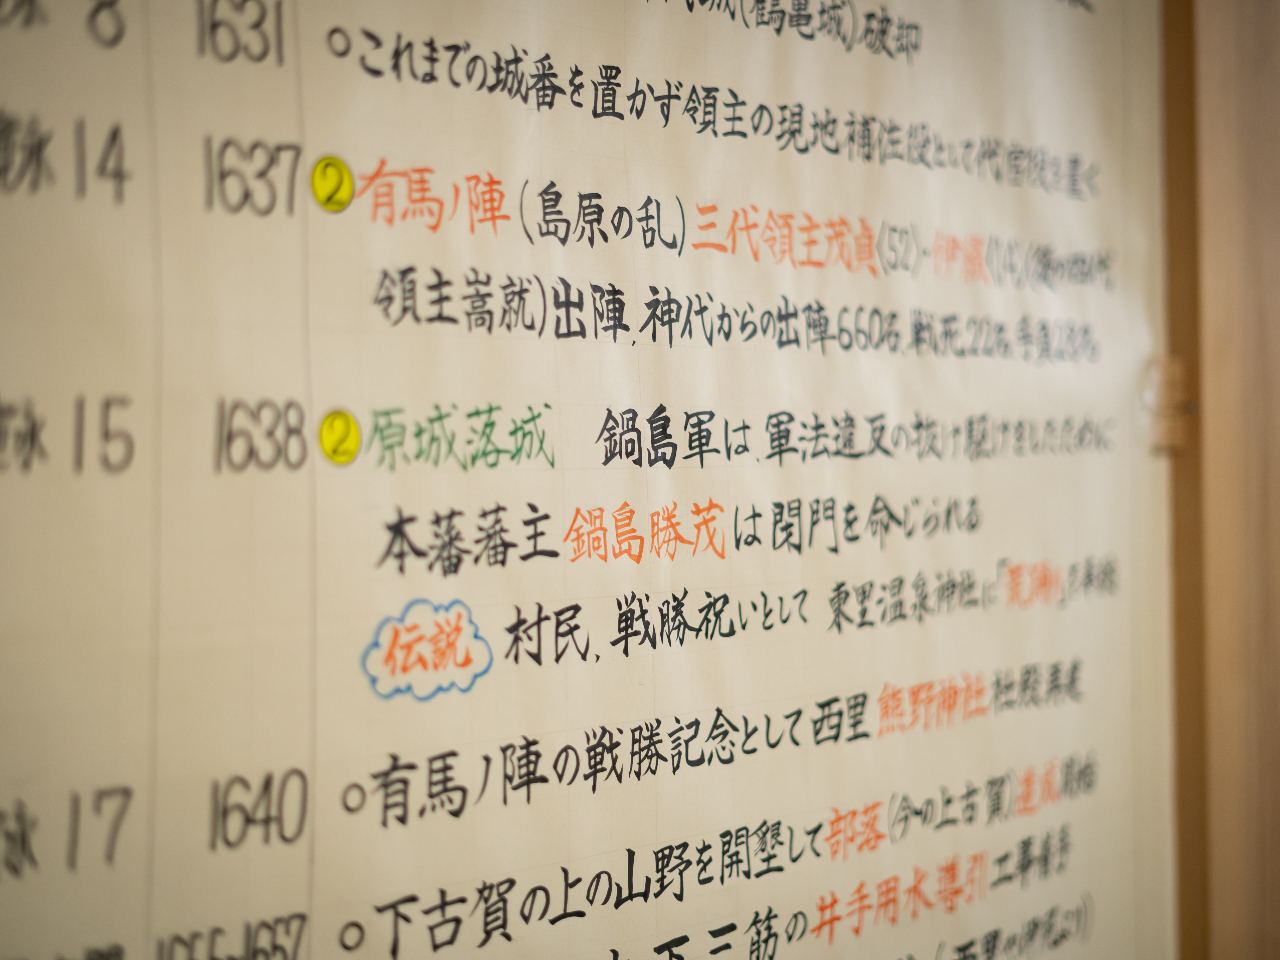 8 1631 城(鶴亀城)破却
○これまでの城番を置かず領主の現地補佐役として代官
14 1637 ②有馬ノ陣(島原の乱)三代領主茂貞(52)
領主嵩就)出陣、神代からの出陣660名、戦死22名、手負28名
15 1638 ②原城落城 鍋島軍は、軍法違反の抜け駆けをしたために
本藩藩主鍋島勝茂は閉門を命じられる
伝説 村民、戦勝祝いとして 東里温泉神社に
17 1640 ○有馬ノ陣の戦勝記念として西里熊野神社社殿再建
○下古賀の上の山野を開墾して部落(今の上古賀)達成開始
1657 下三筋の井手用水導引工事